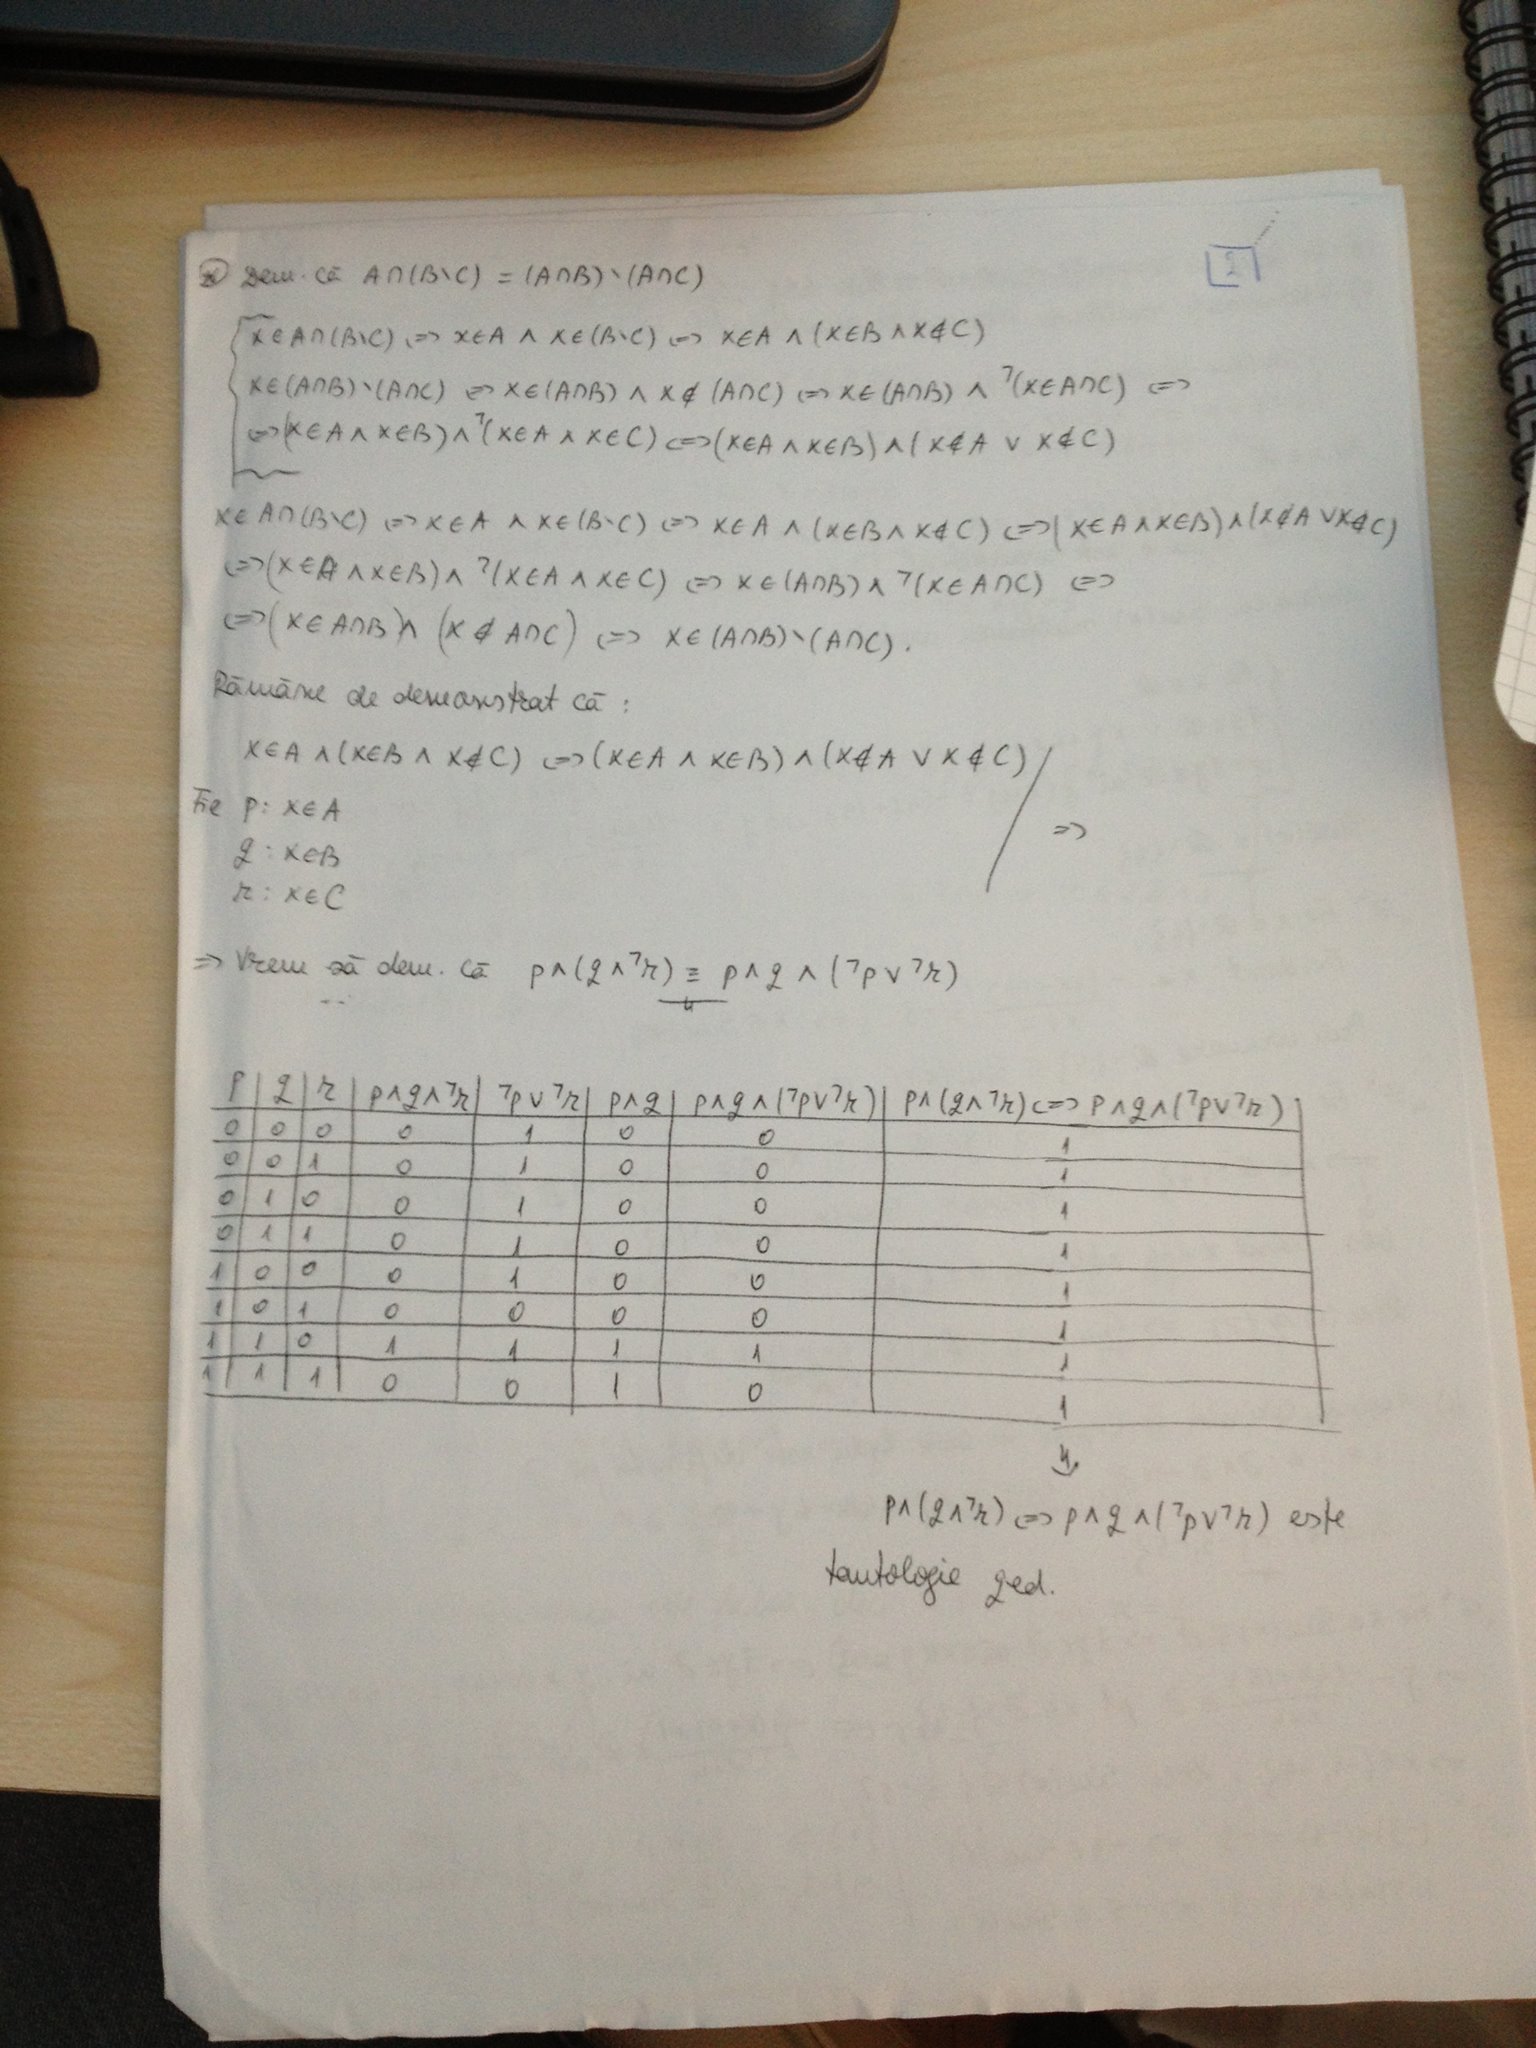 Dem. că A∩(B∖C) = (A∩B)∖(A∩C)
2
x∈A∩(B∖C) <=> x∈A ∧ x∈(B∖C) <=> x∈A ∧ (x∈B ∧ x∉C)
x∈(A∩B)∖(A∩C) <=> x∈(A∩B) ∧ x∉(A∩C) <=> x∈(A∩B) ∧ ⁊(x∈A∩C) <=>
<=>(x∈A ∧ x∈B) ∧ ⁊(x∈A ∧ x∈C) <=> (x∈A ∧ x∈B) ∧ (x∉A ∨ x∉C)
x∈A∩(B∖C) <=> x∈A ∧ x∈(B∖C) <=> x∈A ∧ (x∈B ∧ x∉C) <=> (x∈A ∧ x∈B) ∧ (x∉A ∨ x∉C)
<=>(x∈A ∧ x∈B) ∧ ⁊(x∈A ∧ x∈C) <=> x∈(A∩B) ∧ ⁊(x∈A∩C) <=>
<=>(x∈A∩B) ∧ (x∉A∩C) <=> x∈(A∩B)∖(A∩C).
Rămâne de demonstrat că :
x∈A ∧ (x∈B ∧ x∉C) <=> (x∈A ∧ x∈B) ∧ (x∉A ∨ x∉C)
Fie p: x∈A
=>
q: x∈B
r: x∈C
=> Vrem să dem. că p∧(q∧⁊r) ≡ p∧q∧(⁊p∨⁊r)
p q r p∧q∧⁊r ⁊p∨⁊r p∧q p∧q∧(⁊p∨⁊r) p∧(q∧⁊r) <=> p∧q∧(⁊p∨⁊r)
0 0 0 0 1 0 0 1
0 0 1 0 1 0 0 1
0 1 0 0 1 0 0 1
0 1 1 0 1 0 0 1
1 0 0 0 1 0 0 1
1 0 1 0 0 0 0 1
1 1 0 1 1 1 1 1
1 1 1 0 0 1 0 1
p∧(q∧⁊r) <=> p∧q∧(⁊p∨⁊r) este
tautologie qed.